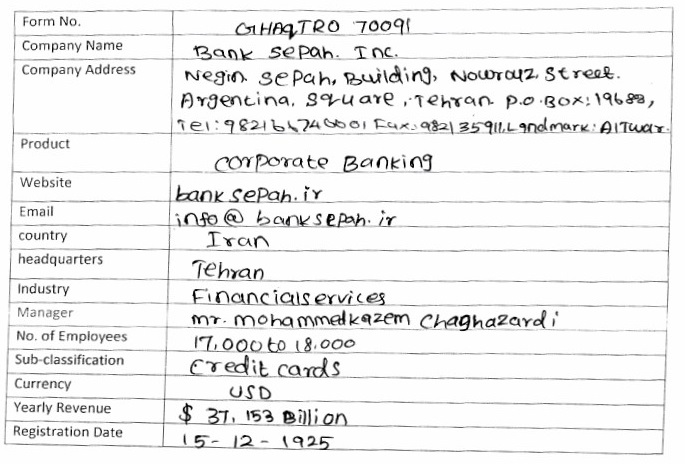 Form No. GHAQTRO 70091
Company Name Bank Sepah. Inc.
Company Address Negin Sepah, Building, Nowrouz, Street.
Argentina, Square, Tehran P.O.Box: 19688,
Fax: 982135911, Landmark: AlTwar.
Product Corporate Banking
Website banksepah.ir
Email info@banksepah.ir
country Iran
headquarters Tehran
Industry Financialservices
Manager mr. mohammedkazem Chaghazardi
No. of Employees 17,000 to 18,000
Sub-classification Credit cards
Currency USD
Yearly Revenue $ 37, 153 Billion
Registration Date 15-12-1925